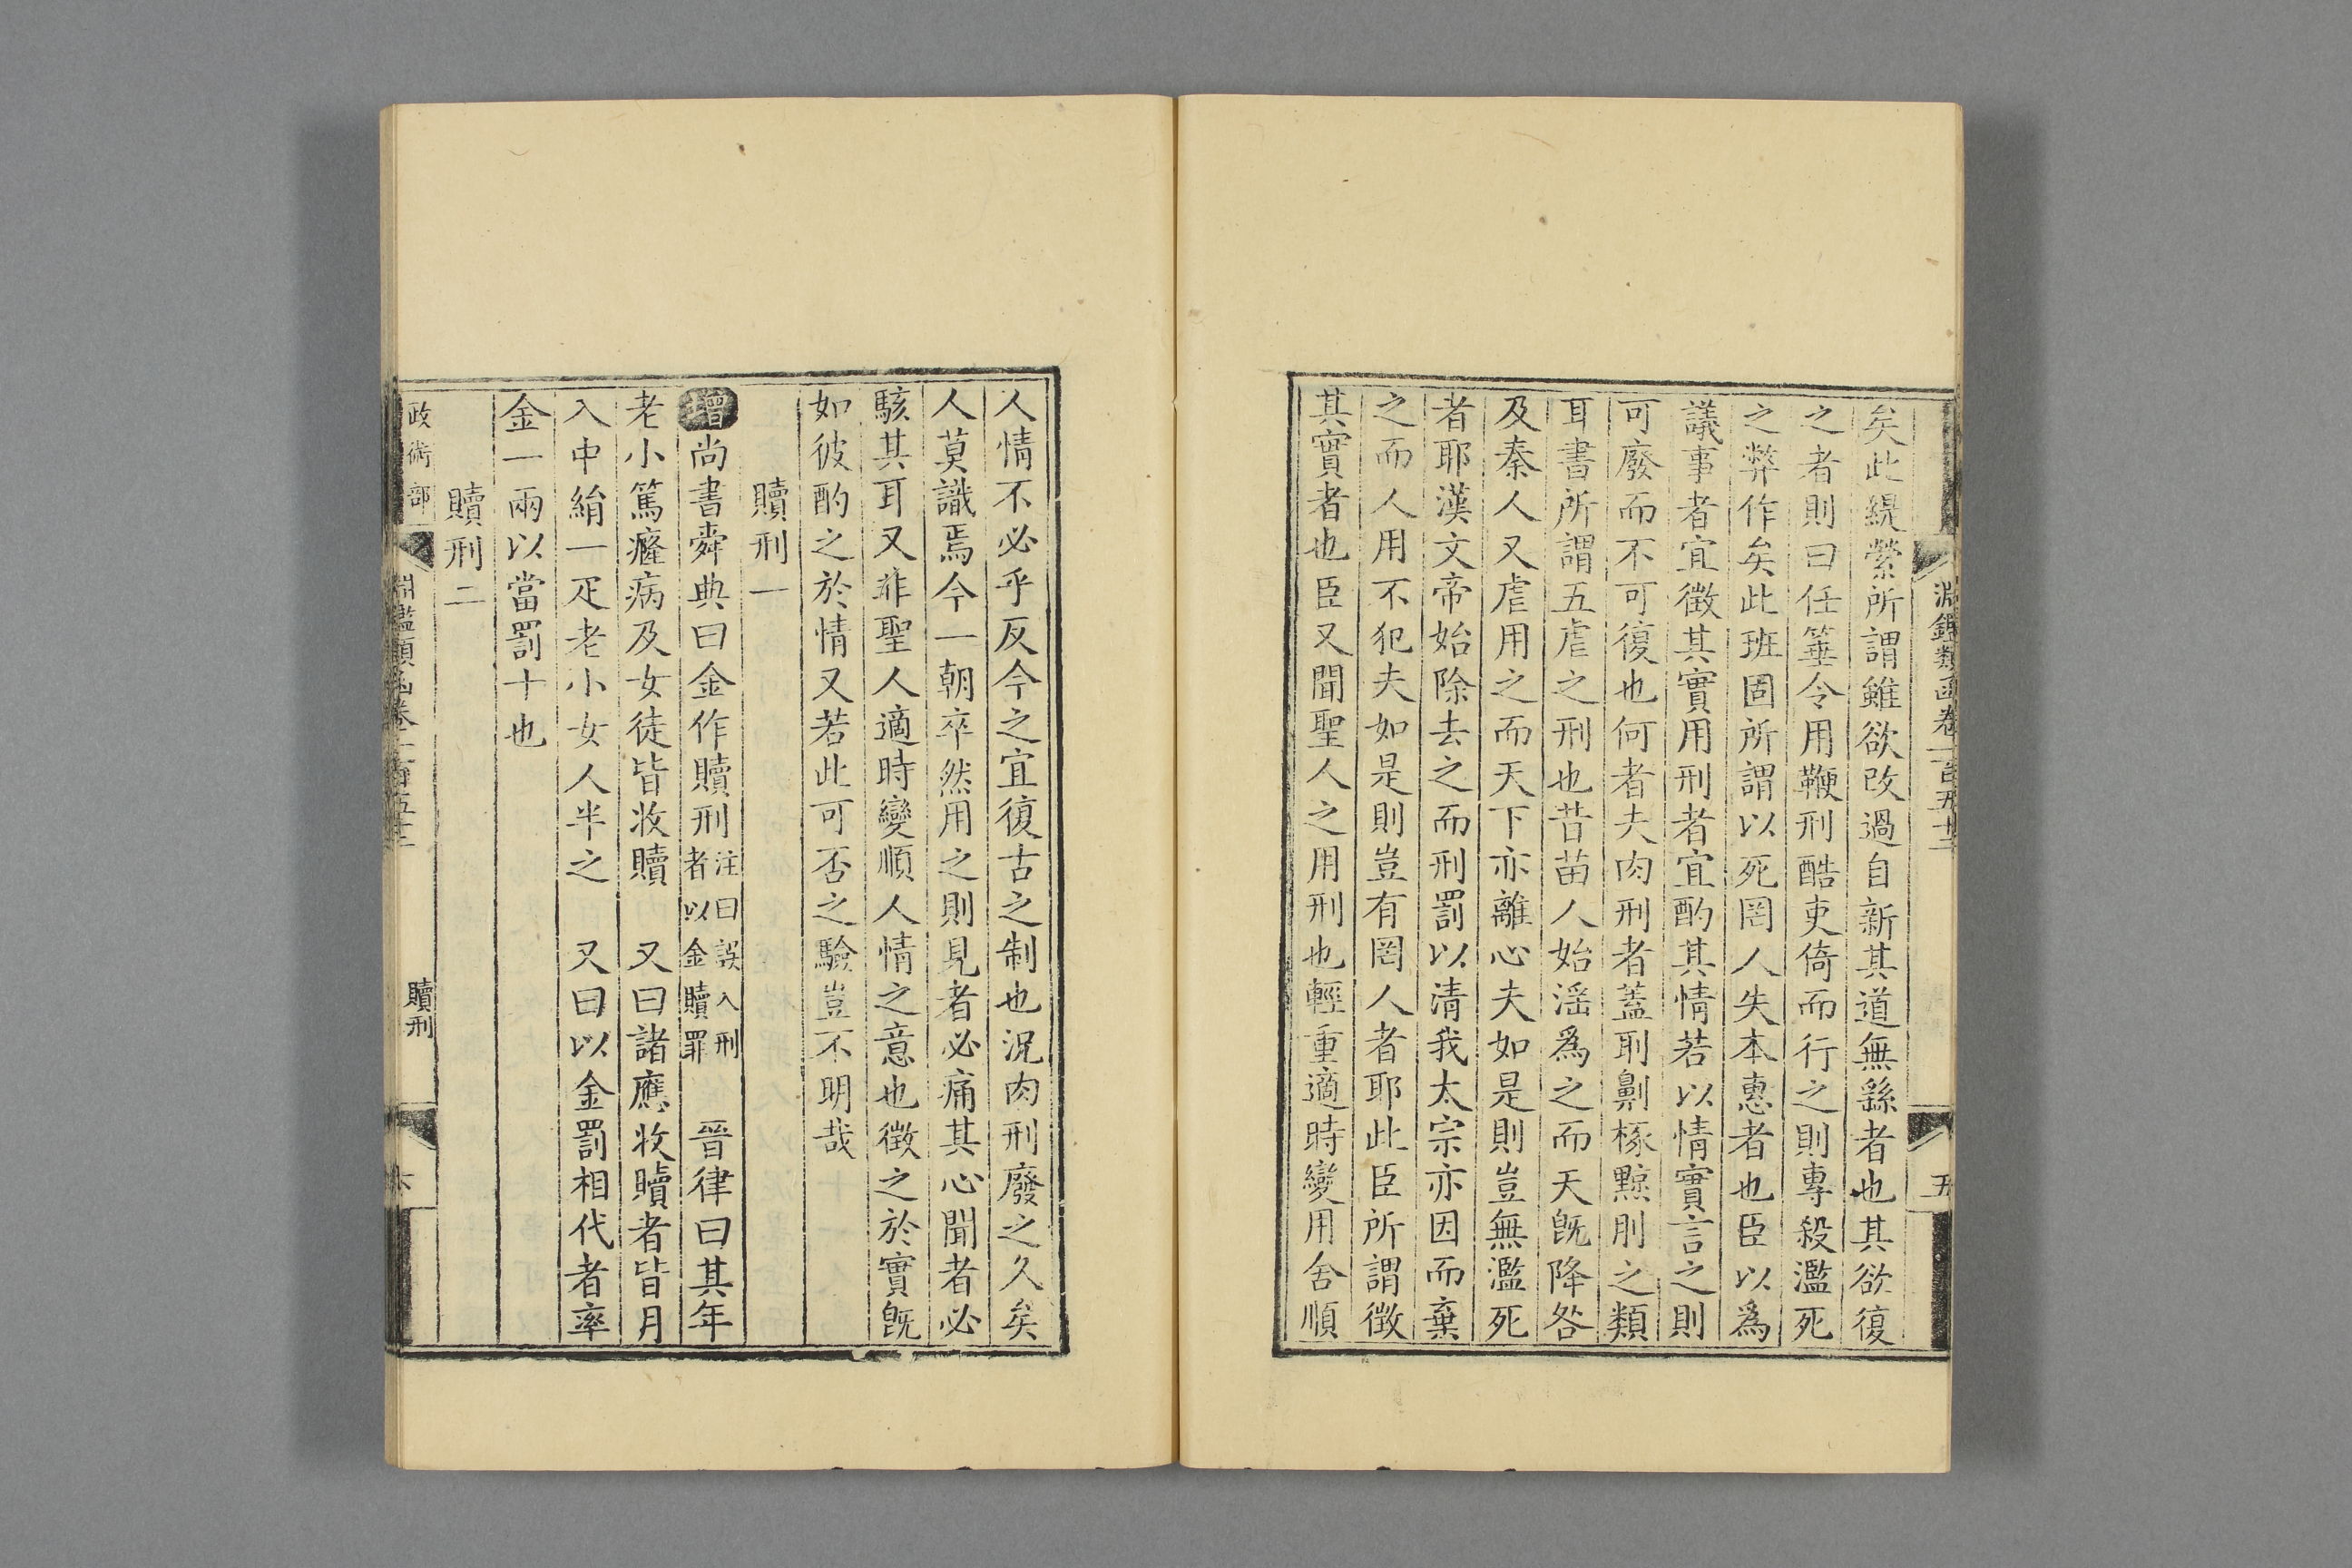 淵鑑類函卷一百五十二
五
矣此緹縈所謂雖欲改過自新其道無繇者也其欲復
之者則曰任箠令用鞭刑酷吏倚而行之則專殺濫死
之弊作矣此班固所謂以死罔人失本惠者也臣以爲
議事者宜徵其實用刑者宜酌其情若以情實言之則
可廢而不可復也何者夫肉刑者蓋刵劓椓黥刖之類
耳書所謂五虐之刑也昔苗人始淫爲之而天旣降咎
及秦人又虐用之而天下亦離心夫如是則豈無濫死
者耶漢文帝始除去之而刑罰以清我太宗亦因而棄
之而人用不犯夫如是則豈有罔人者耶此臣所謂徵
其實者也臣又聞聖人之用刑也輕重適時變用舍順
人情不必乎反今之宜復古之制也況肉刑廢之久矣
人莫識焉今一朝卒然用之則見者必痛其心聞者必
駭其耳又非聖人適時變順人情之意也徵之於實旣
如彼酌之於情又若此可否之驗豈不明哉
贖刑一
增尚書舜典曰金作贖刑注曰誤入刑者以金贖罪 晉律曰其年
老小篤癃病及女徒皆收贖 又曰諸應收贖者皆月
入中絹一疋老小女人半之 又曰以金罰相代者率
金一兩以當罰十也
贖刑二
政術部
淵鑑類函卷一百五十二
贖刑
六